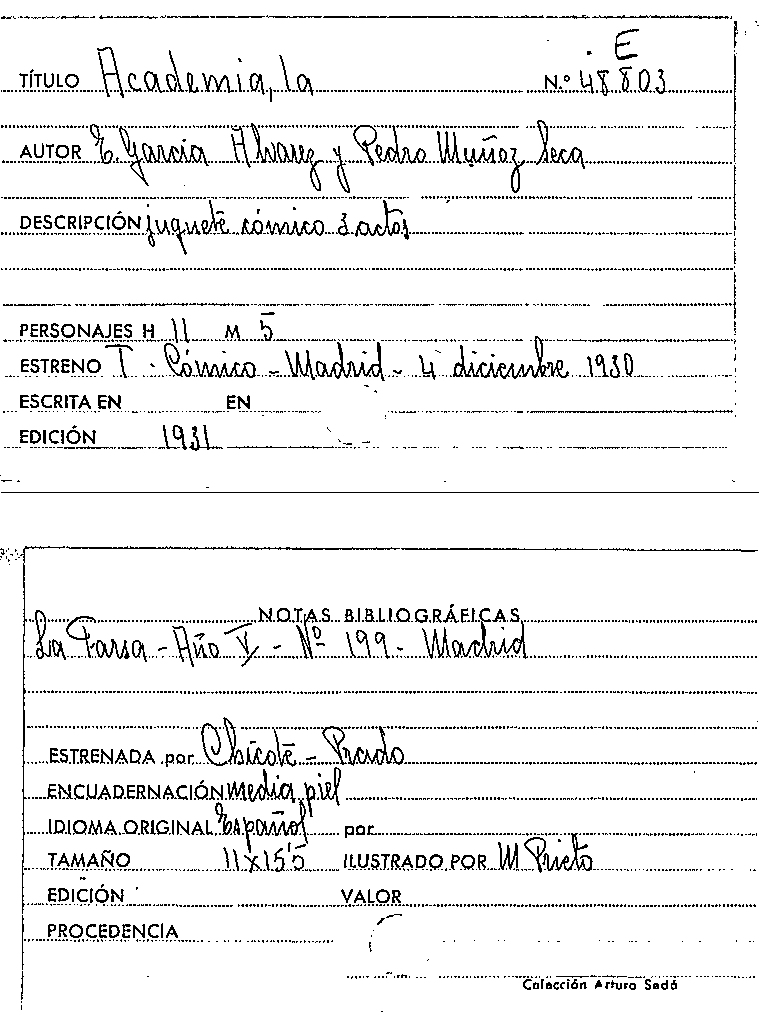 E
TÍTULO Academia, la N.º 48803
AUTOR E. García Alvarez y Pedro Muñoz Seca
DESCRIPCIÓN juguete cómico 3 actos
PERSONAJES H 11 M 5
ESTRENO T. Cómico - Madrid - 4 diciembre 1930
ESCRITA EN EN
EDICIÓN 1931
NOTAS BIBLIOGRÁFICAS
La Farsa - Año V - Nº 199 - Madrid
ESTRENADA por Chicote - Prado
ENCUADERNACIÓN media piel
IDIOMA ORIGINAL Español por
TAMAÑO 11x15'5 ILUSTRADO POR M Prieto
EDICIÓN VALOR
PROCEDENCIA
Colección Arturo Sedó